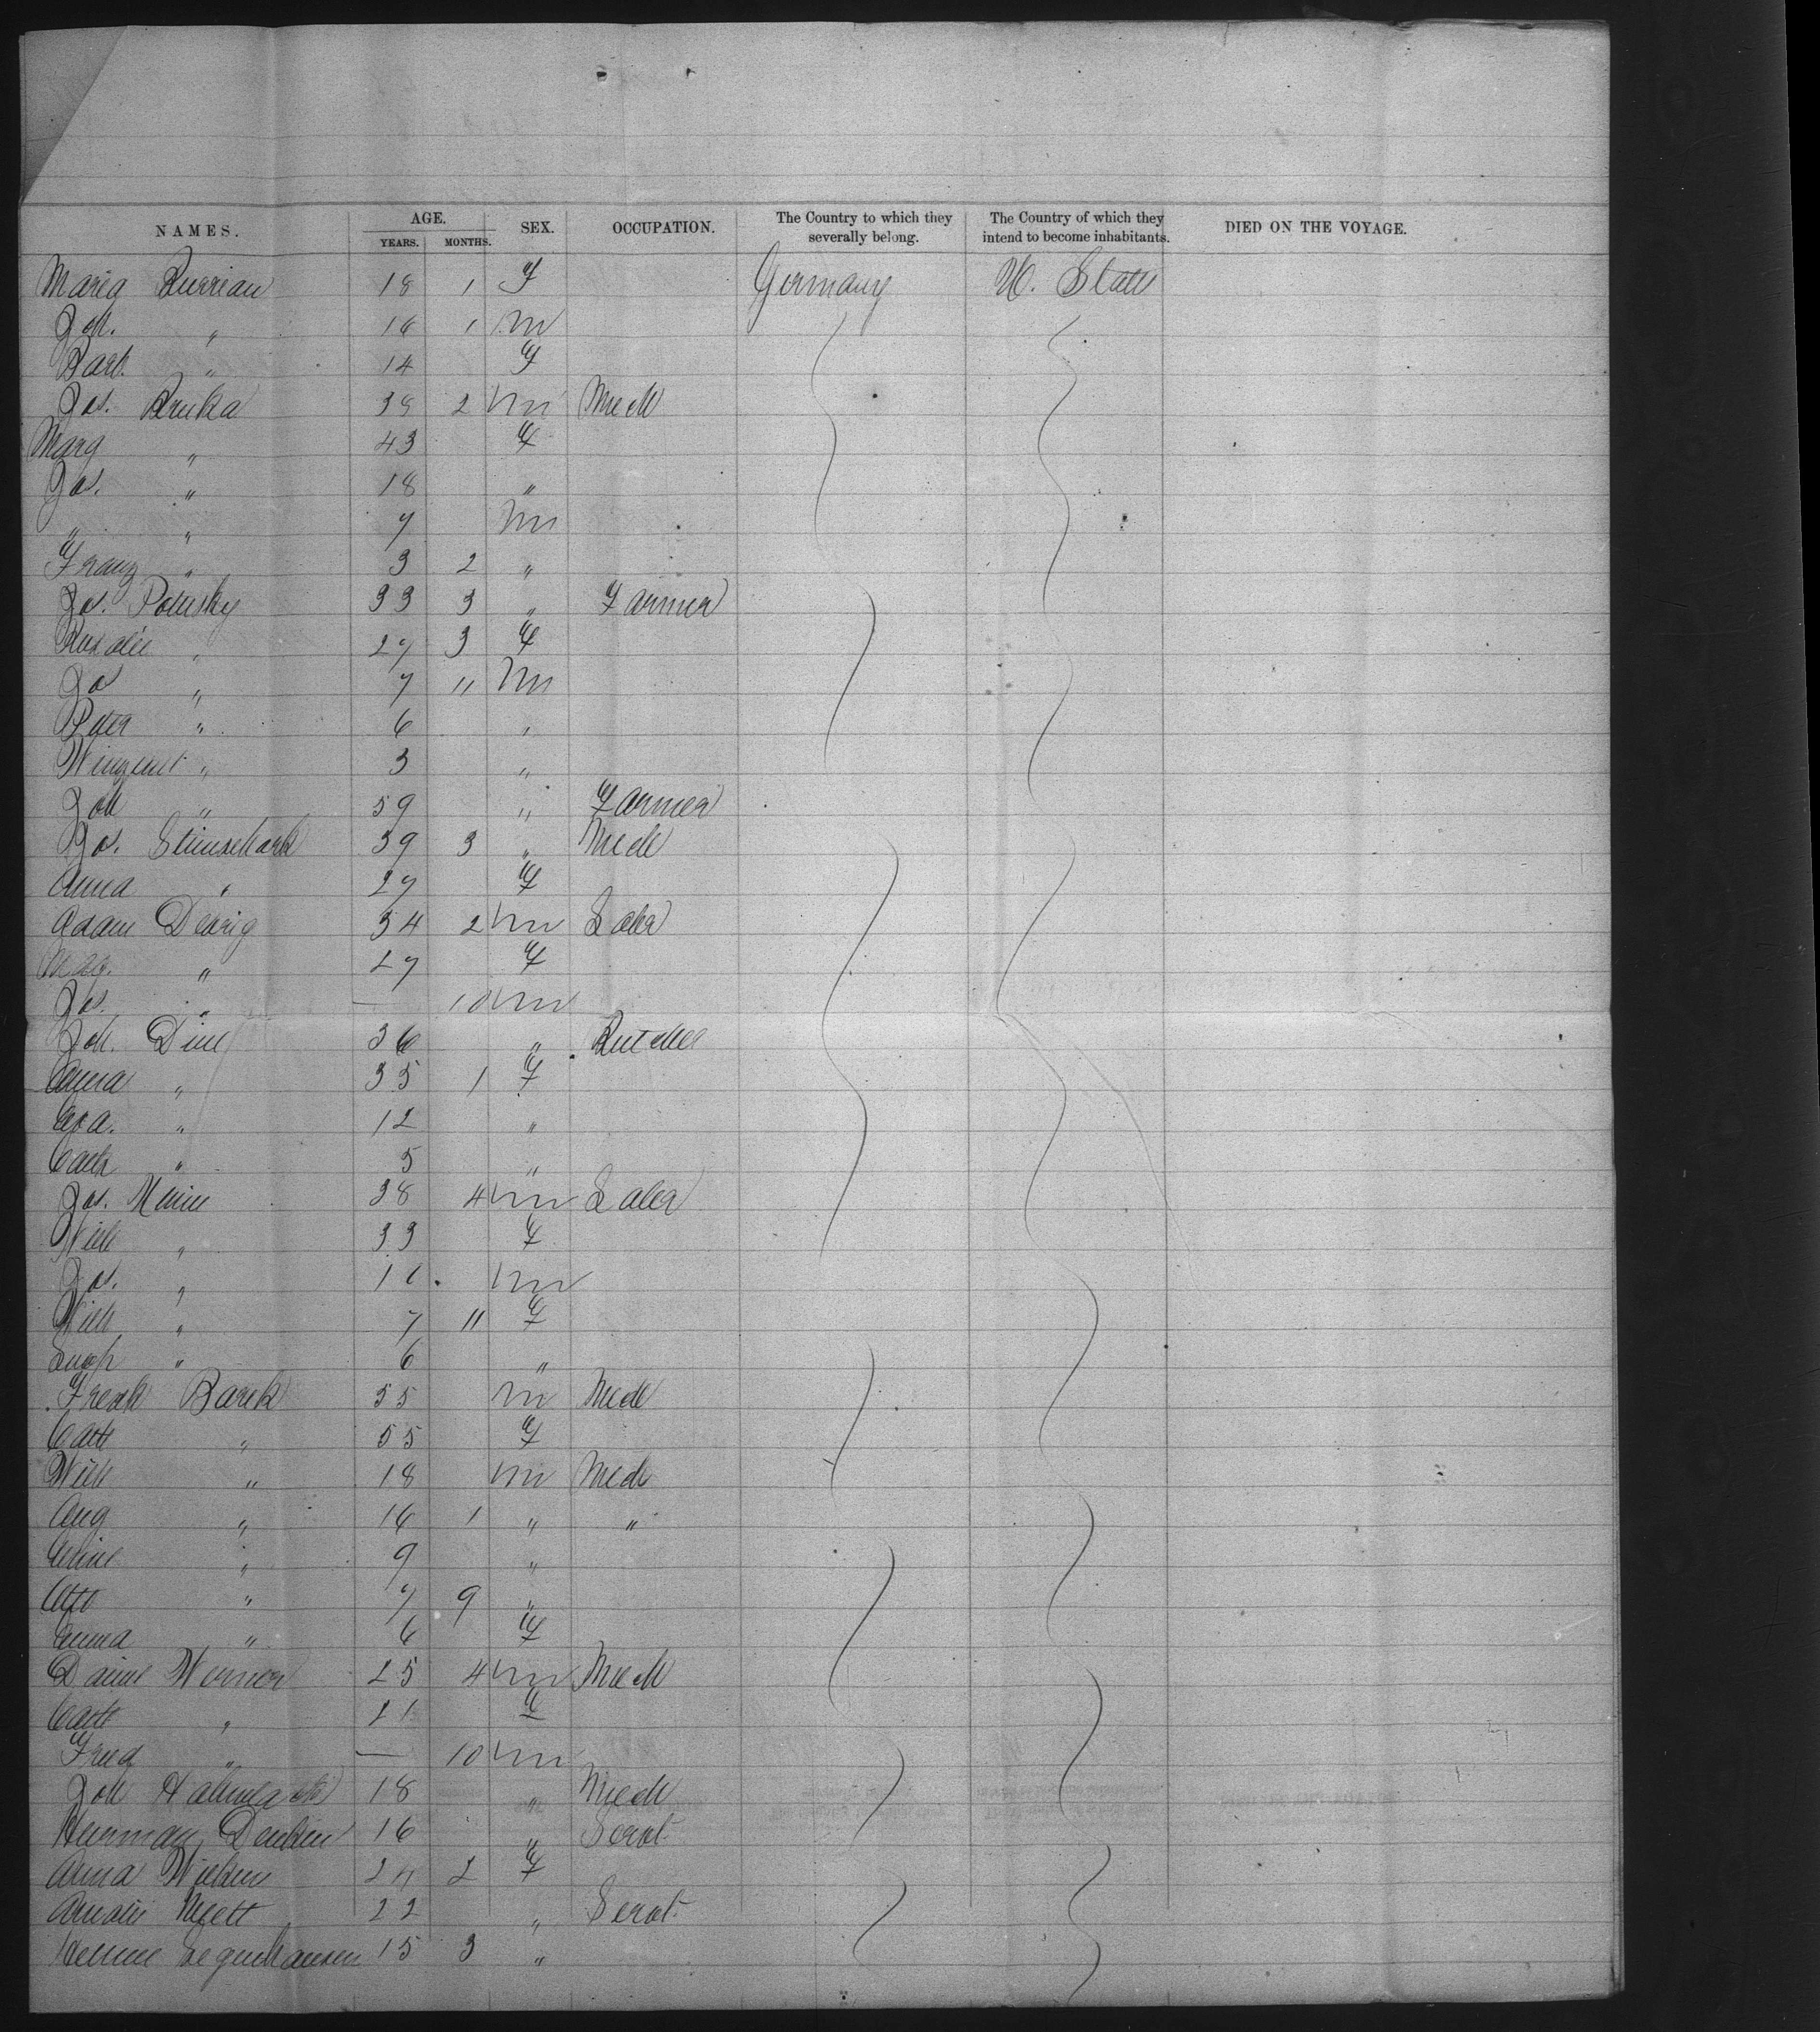 NAMES. AGE. YEARS. MONTHS. SEX. OCCUPATION. The Country to which they severally belong. The Country of which they intend to become inhabitants. DIED ON THE VOYAGE.
Maria 18 1 F Germany U. States
Joh. " 16 1 m
Barb. " 14 F
Jos. Bruka 38 2 m Mech
Marg " 43 F
Jos. " 18 "
" " 7 m
Franz " 3 2 "
Jos. Polusky 33 3 " Farmer
Rosalie " 27 3 F
Jos " 7 11 m
Peter " 6 "
Winzent " 3 "
Joh " 59 " Farmer
Jos. 39 3 " Mech
Anna " 27 F
Adam 34 2 m Labr
Mag. " 27 F
Jos. " — 10 m
Joh. 36 " Butcher
Anna " 35 1 F
Eva. " 12 "
Cath " 5 "
Jos. 38 4 m Labr
Wilh " 33 F
Jos. " m
Wilh " 7 11 F
" 6 "
Fredk Barek 55 m Mech
Cath " 55 F
Wilh " 18 m Mech
Aug " 16 1 " "
" 9 "
Otto " 7 9 "
Emma " 6 F
Werner 25 4 m Mech
Cath " 21 F
Fried " — 10 m
Joh 18 " Mech
Herrman 16 " Servt.
Anna 24 2 F
Amalie 22 " Servt.
15 3 "